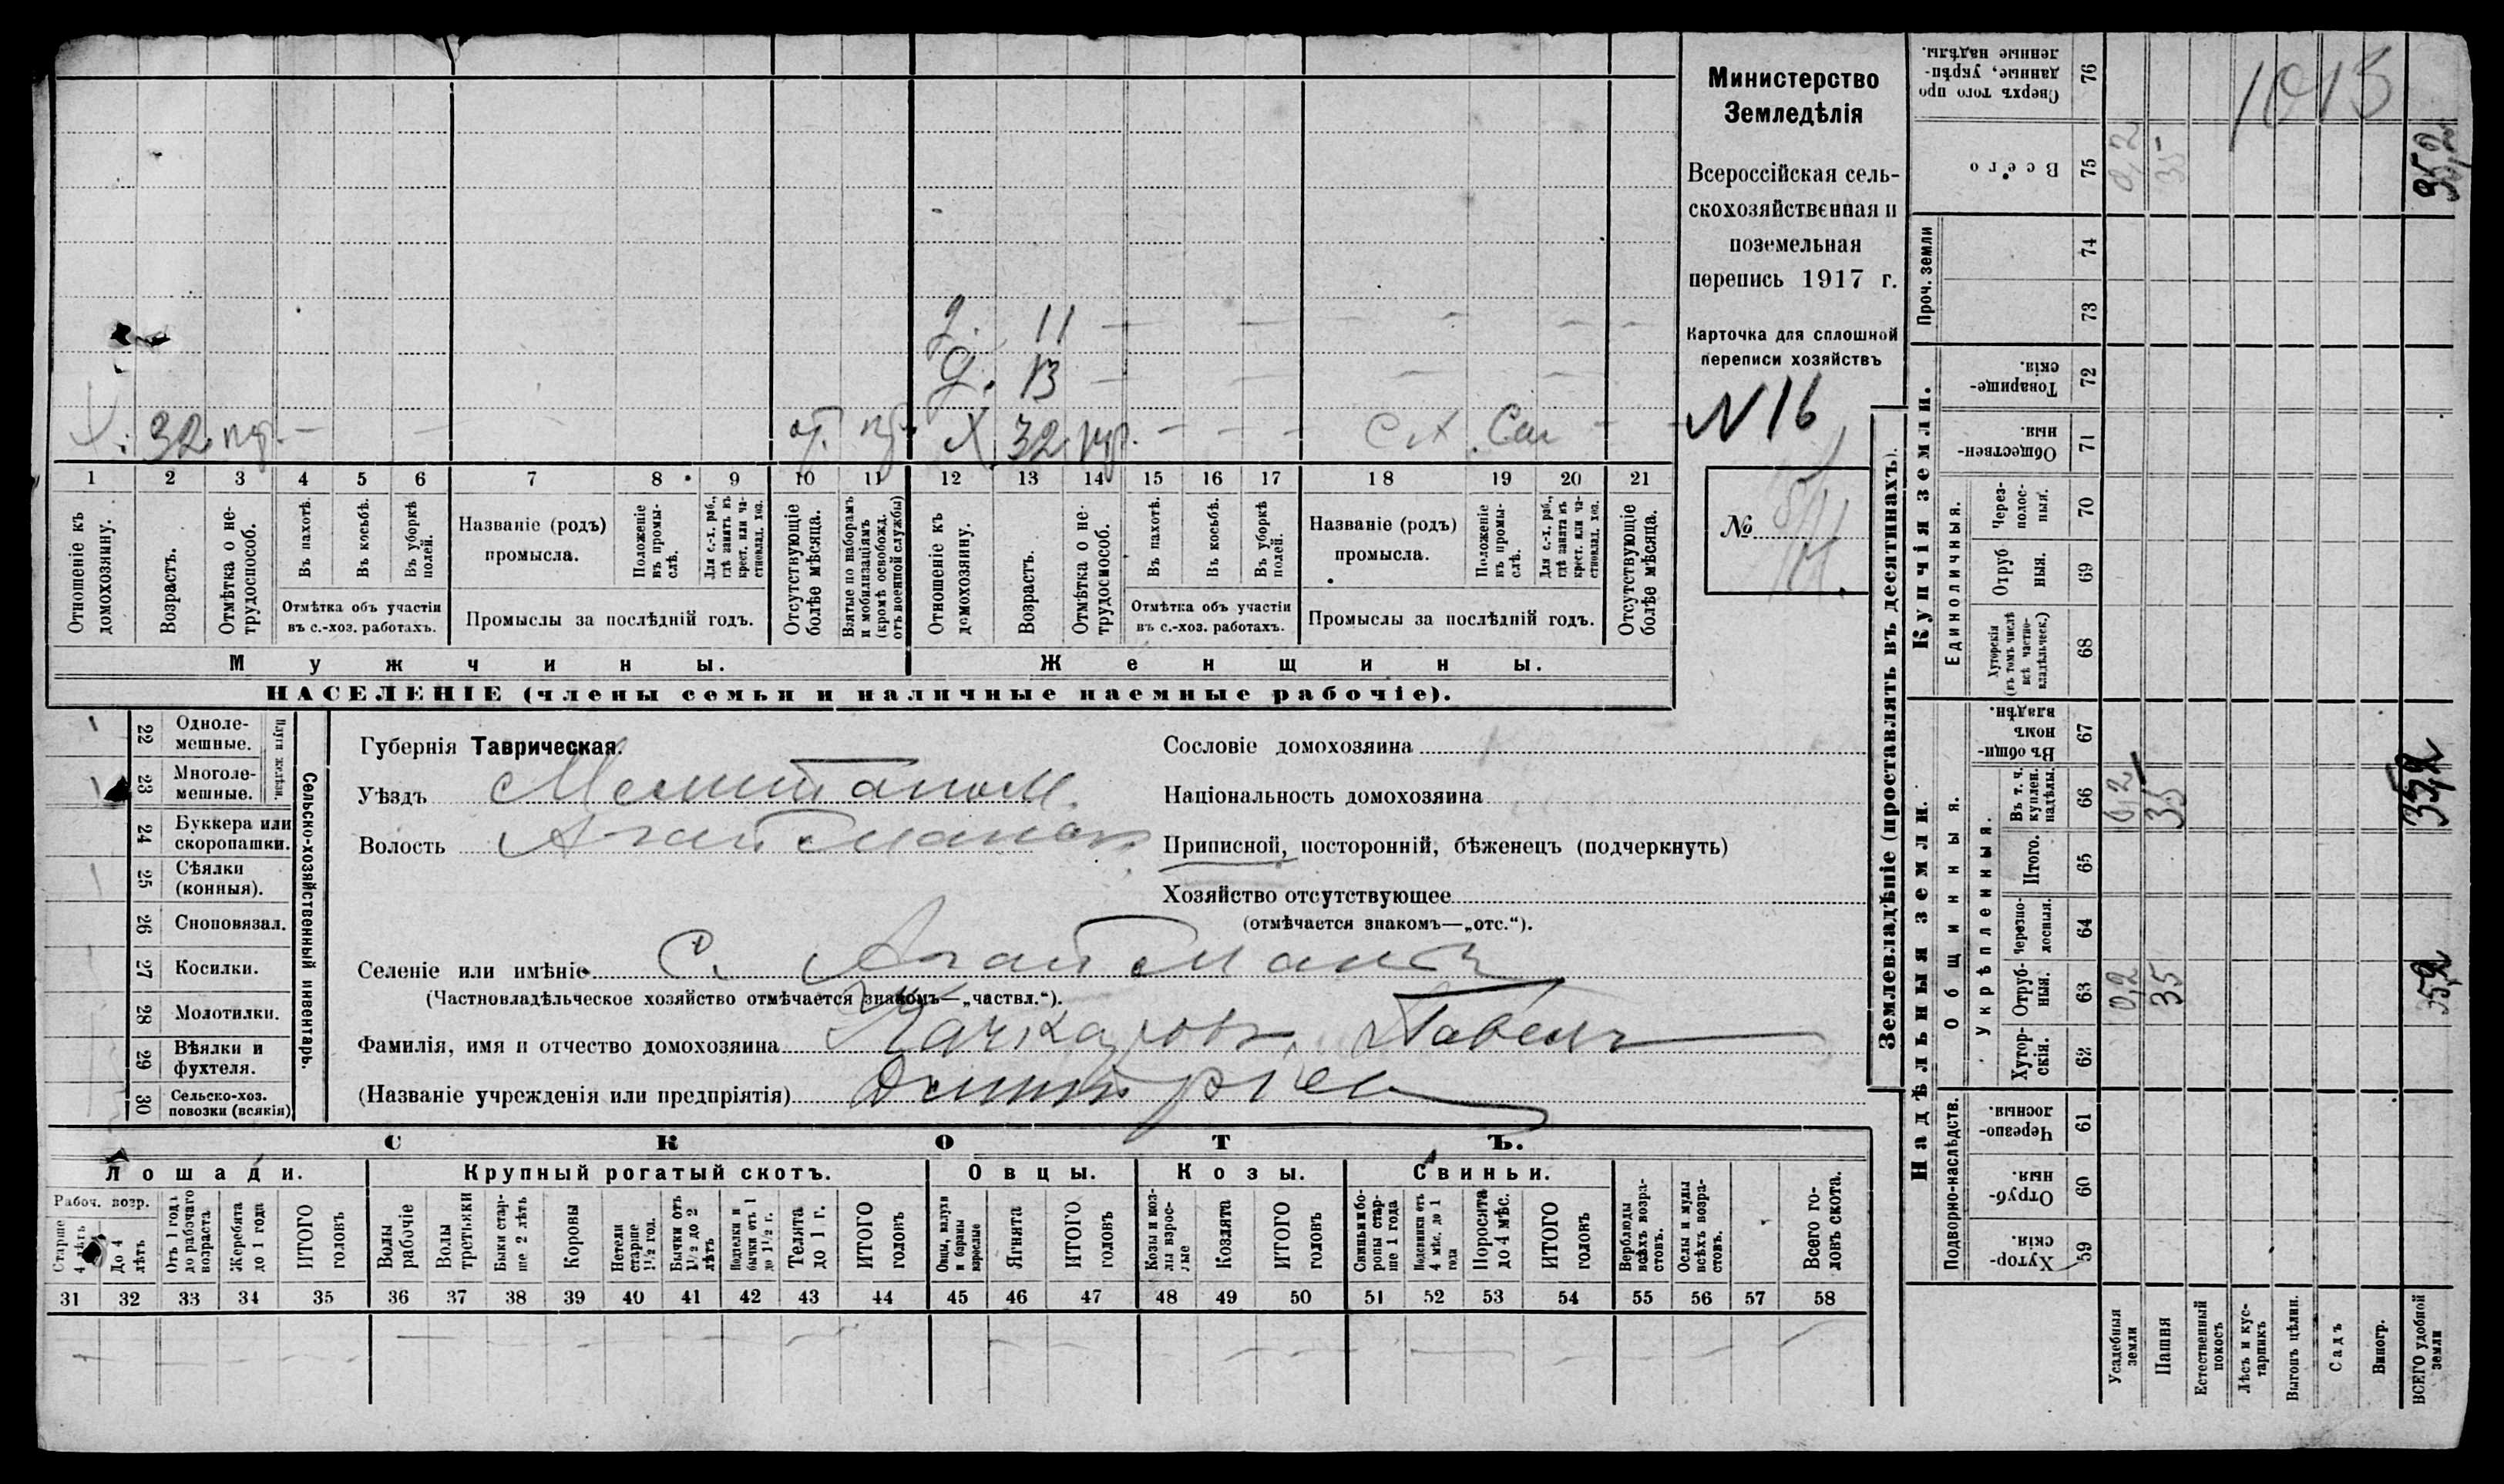 Министерство
Земледѣлія
Всероссійская сель-
скохозяйственная и
поземельная
перепись 1917 г.
Карточка для сплошной
переписи хозяйствъ
N 16
№
д. 11 — — — — — —
д. 13 — — — — —
Х. 32 — от. Х 32 — — — с х. —
1 2 3 4 5 6 7 8 9 10 11 12 13 14 15 16 17 18 19 20 21
Отношеніе къ домохозяину.
Возрастъ.
Отмѣтка о не-трудоспособ.
Въ пахотѣ.
Въ косьбѣ.
Въ уборкѣ полей.
Отмѣтка объ участіи
въ с.-хоз. работахъ.
Названіе (родъ)
промысла.
Положеніе въ промы-слѣ.
Для с.-х. раб., гдѣ занятъ въ крест. или ча-стновлад. хоз.
Промыслы за послѣдній годъ.
Отсутствующіе болѣе мѣсяца.
Взятые по наборамъ и мобилизаціямъ (кромѣ освобожд. отъ военной службы)
Отношеніе къ домохозяину.
Возрастъ.
Отмѣтка о не-трудоспособ.
Въ пахотѣ.
Въ косьбѣ.
Въ уборкѣ полей.
Отмѣтка объ участіи
въ с.-хоз. работахъ.
Названіе (родъ)
промысла.
Положеніе въ промы-слѣ.
Для с.-х. раб., гдѣ занята въ крест. или ча-стновлад. хоз.
Промыслы за послѣдній годъ.
Отсутствующіе болѣе мѣсяца.
Мужчины.
Женщины.
НАСЕЛЕНІЕ (члены семьи и наличные наемные рабочіе).
22 Одноле-мешные.
23 Многоле-мешные.
Плуги желѣзн.
24 Буккера или скоропашки.
25 Сѣялки (конныя).
26 Сноповязал.
27 Косилки.
28 Молотилки.
29 Вѣялки и фухтеля.
30 Сельско-хоз. повозки (всякія)
Сельско-хозяйственный инвентарь.
Губернія Таврическая.
Уѣздъ Мелитопол.
Волость Агайманск
Сословіе домохозяина
Національность домохозяина
Приписной, посторонній, бѣженецъ (подчеркнуть)
Хозяйство отсутствующее
(отмѣчается знакомъ—„отс.“).
Селеніе или имѣніе С. Агайманъ
(Частновладѣльческое хозяйство отмѣчается знакомъ—„частвл.“).
Фамилія, имя и отчество домохозяина Качкаровъ, Павелъ
(Названіе учрежденія или предпріятія)
СКОТЪ.
Лошади. Крупный рогатый скотъ. Овцы. Козы. Свиньи.
Рабоч. возр.
Старше 4 лѣтъ
До 4 лѣтъ
Отъ 1 года до рабочаго возраста
Жеребята до 1 года
ИТОГО головъ
Волы рабочіе
Волы третьяки
Быки стар-ше 2 лѣтъ
Коровы
Нетели старше 1½ год.
Бычки отъ 1½ до 2 лѣтъ
Подтелки и бычки отъ 1 до 1½ г.
Телята до 1 г.
ИТОГО головъ
Овцы, валухи и бараны взрослые
Ягнята
ИТОГО головъ
Козы и коз-лы взрос-лые
Козлята
ИТОГО головъ
Свиньи и бо-ровы стар-ше 1 года
Подсвинки отъ 4 мѣс. до 1 года
Поросята до 4 мѣс.
ИТОГО головъ
Верблюды всѣхъ возра-стовъ.
Ослы и мулы всѣхъ возра-стовъ.
Всего го-ловъ скота.
31 32 33 34 35 36 37 38 39 40 41 42 43 44 45 46 47 48 49 50 51 52 53 54 55 56 57 58
Землевладѣніе (проставлять въ десятинахъ).
Надѣльныя земли.
Купчія земли.
Проч. земли
Подворно-наслѣдств.
Общинныя.
Укрѣпленныя.
Единоличныя.
Хутор-скія. 59
Отруб-ныя. 60
Черезпо-лосныя. 61
Хутор-скія. 62
Отруб-ныя. 63 0,2 35 35,2
Черезпо-лосныя. 64
Итого. 65
Въ т. ч. куплен. надѣлы. 66 0,2 35 35,2
Въ общин-номъ владѣн. 67
Хуторскія (въ томъ числѣ всѣ частно-владѣльческ.) 68
Отруб-ныя. 69
Через-полос-ныя. 70
Обществен-ныя. 71
Товарище-скія. 72
73
74
Всего 75 0,2 35 35,2
Сверхъ того про-данные, укрѣп-ленные надѣлы. 76
1013
Усадебныя земли
Пашня
Естественный покосъ
Лѣсъ и кус-тарникъ
Выгонъ цѣлин.
Садъ
Виногр.
ВСЕГО удобной земли